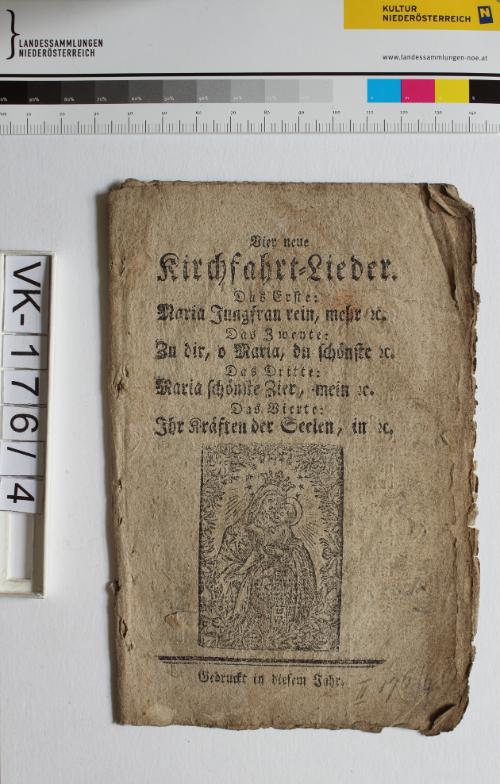 KULTUR
NIEDERÖSTERREICH N
LANDESSAMMLUNGEN
NIEDERÖSTERREICH
www.landessammlungen-noe.at
VK-176/4
Vier neue
Kirchfahrt-Lieder.
Das Erste:
Maria Jungfrau rein, mehr ꝛc.
Das Zweyte:
Zu dir, o Maria, du schönste ꝛc.
Das Dritte:
Maria schönste Zier, mein ꝛc.
Das Vierte:
Ihr Kräften der Seelen, in ꝛc.
Gedruckt in diesem Jahr.